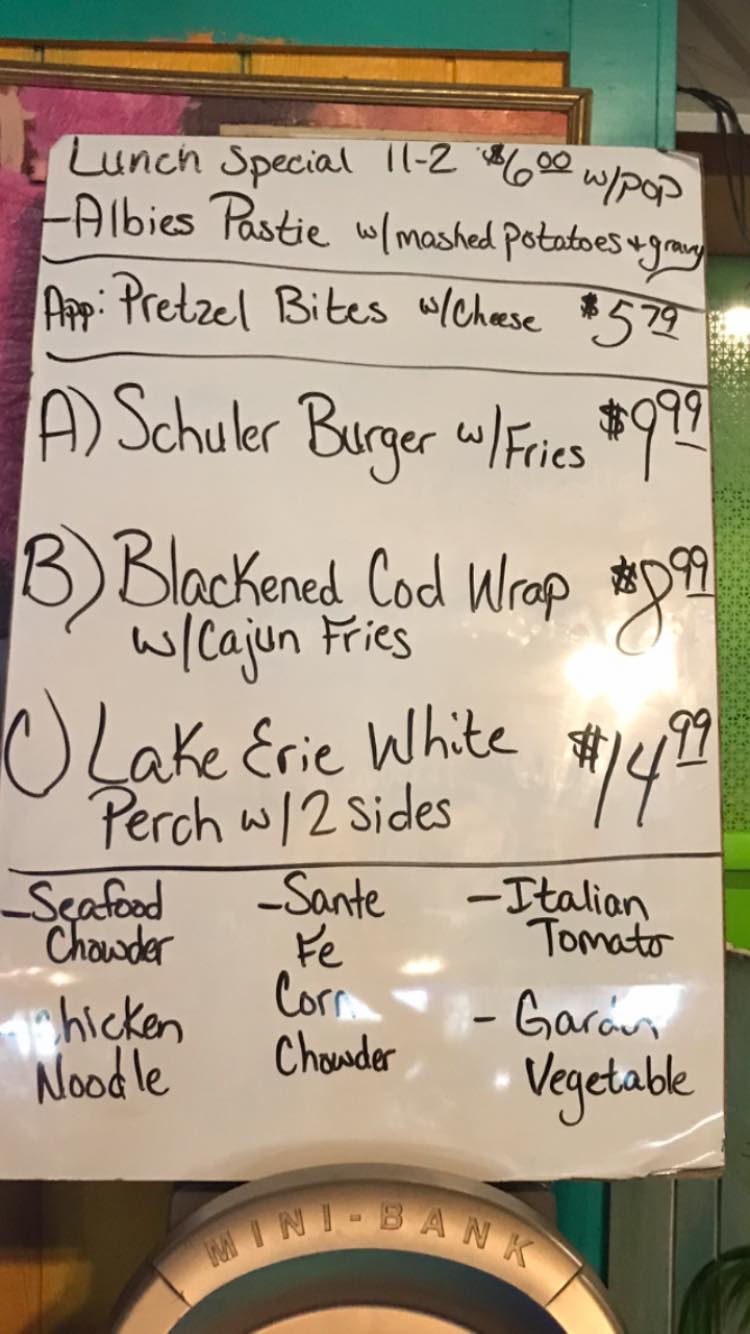 Lunch Special 11-2 $6.00 w/pop
-Albies Pastie w/mashed potatoes + gravy
App: Pretzel Bites w/Cheese $5.79
A) Schuler Burger w/Fries $9.99
B) Blackened Cod Wrap $8.99
w/Cajun Fries
C) Lake Erie White $14.99
Perch w/2 sides
-Seafood
Chowder
Chicken
Noodle
-Sante
Fe
Corn
Chowder
-Italian
Tomato
-Garden
Vegetable
MINI-BANK